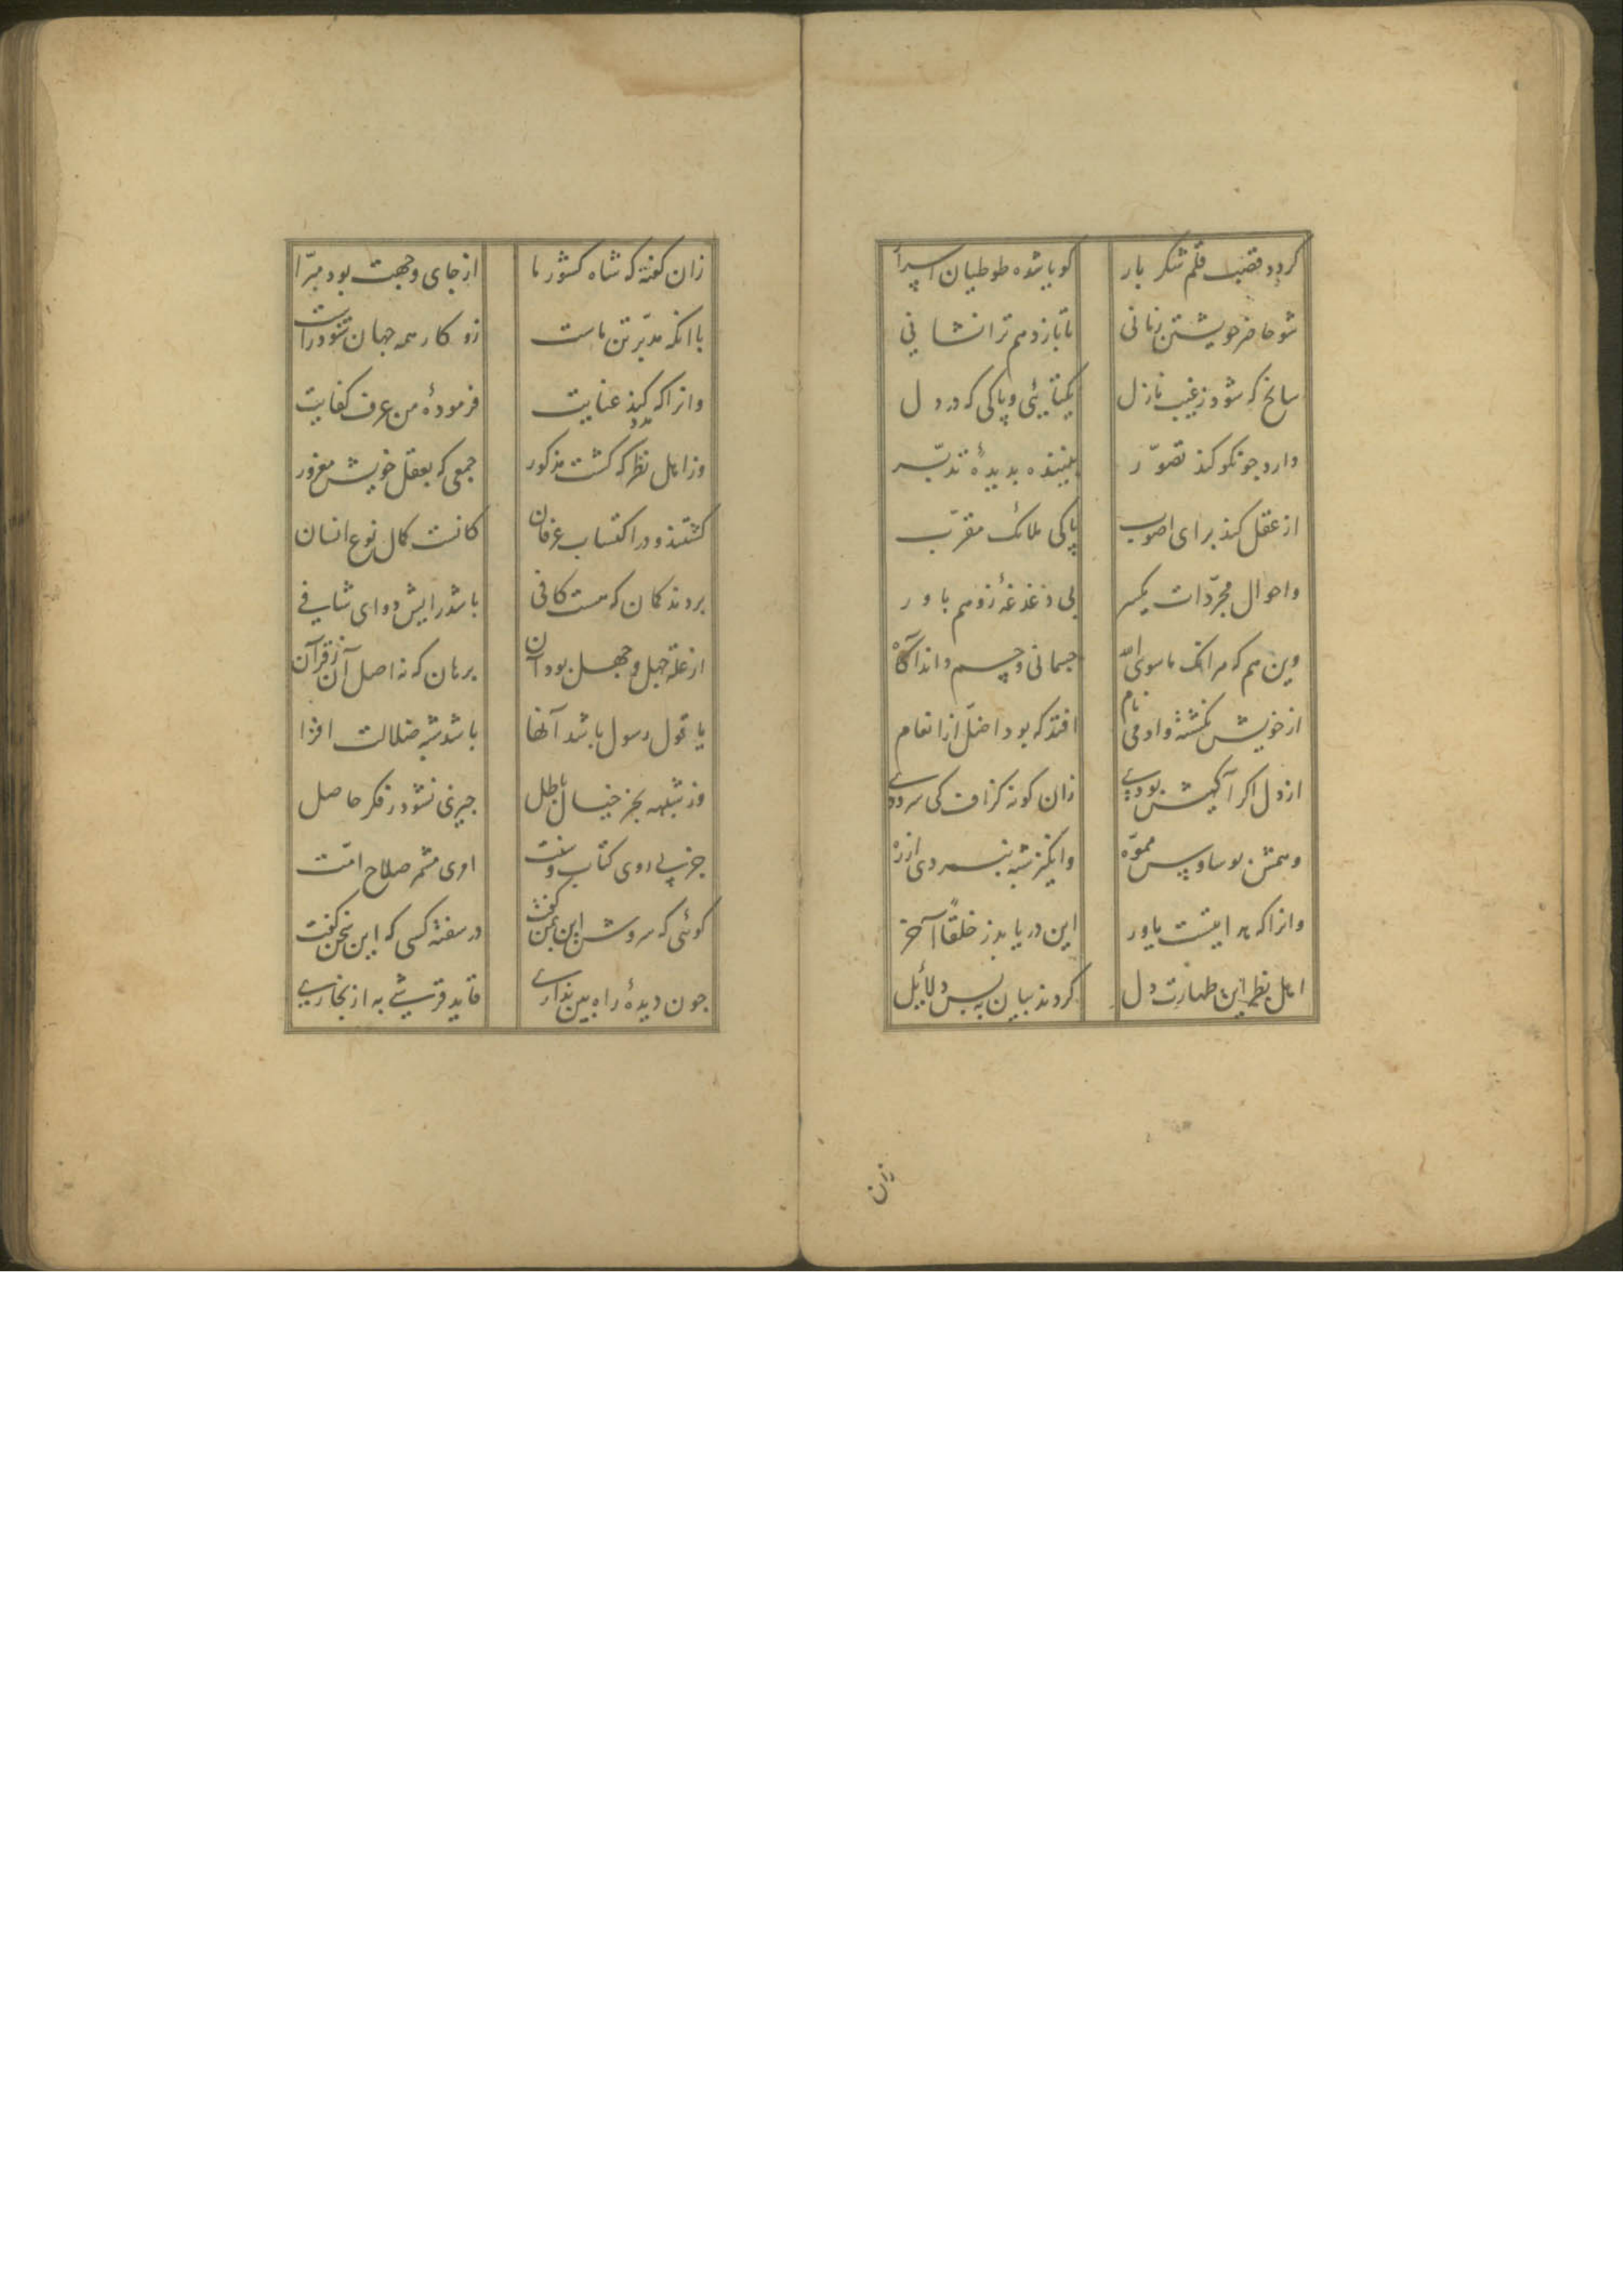 گردد قصب قلم شکر بار گویا شده طوطیان اسرار
شو حاضر خویشتن زمانی تا بازدهم ترا نشانی
سانح که شود ز غیب نازل یکتایئی و پاکی که در دل
دارد جو نکو کند تصوّر بیننده بدیدهٔ تدبّر
از عقل کند برای اصوب پاکی ملائک مقرّب
واحوال مجرّدات یکسر بی دغدغهٔ ز وهم باور
وین هم که مرانک ماسوی الله جسمانی و جسم داند آگاه
از خویش نگشته وادمی نام افتد که بود اضلّ از انعام
از دل اکر آکهیش بودی زان کونه کزاف کی سرودی
وهمش بوساوس مموّه وانکیز شبه نبردی از ره
وانرا که هدایتست یاور این دریابد ز خلقاً آخر
اهل نظر این طهارت دل کردند بیان به بس دلائل
زان
زان گفته که شاه کشور ما از جای و جهت بود مبرّا
با انکه مدبّر تن ماست زو کار همه جهان شود راست
وانرا که کند مدد عنایت فرمودهٔ من عرف کفایت
وز اهل نظر که کشت مذکور جمعی که بعقل خویش مغرور
کشتند و در اکتساب عرفان کانست کمال نوع انسان
بردند کمان که هست کافی باشد رایش دوای شافی
از علّه جهل و جهل بود آن برهان که نه اصل آن ز قرآن
یا قول رسول باشد آنها باشد شبه ضلالت افزا
وز شبهه بجز خیال باطل جیزی نشود ز فکر حاصل
جز پی روی کتاب و سنت اری مثمر صلاح امّت
کوئی که سروش این بمن گفت در سفته کسی که این سخن کفت
جون دیدهٔ راه بین نداری قاید قرشی به از بخاری